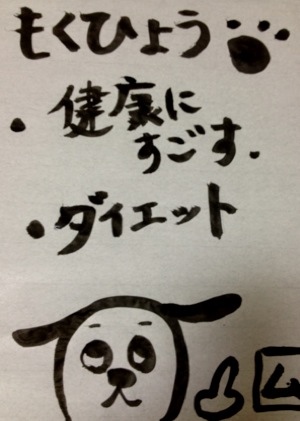 もくひょう
・健康に
すごす.
・ダイエット